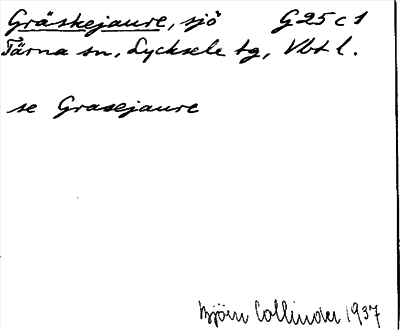 Gräskejaure, sjö G25c1
Tärna sn, Lycksele tg, Vbt l.
se Grasejaure
Björn Collinder 1937